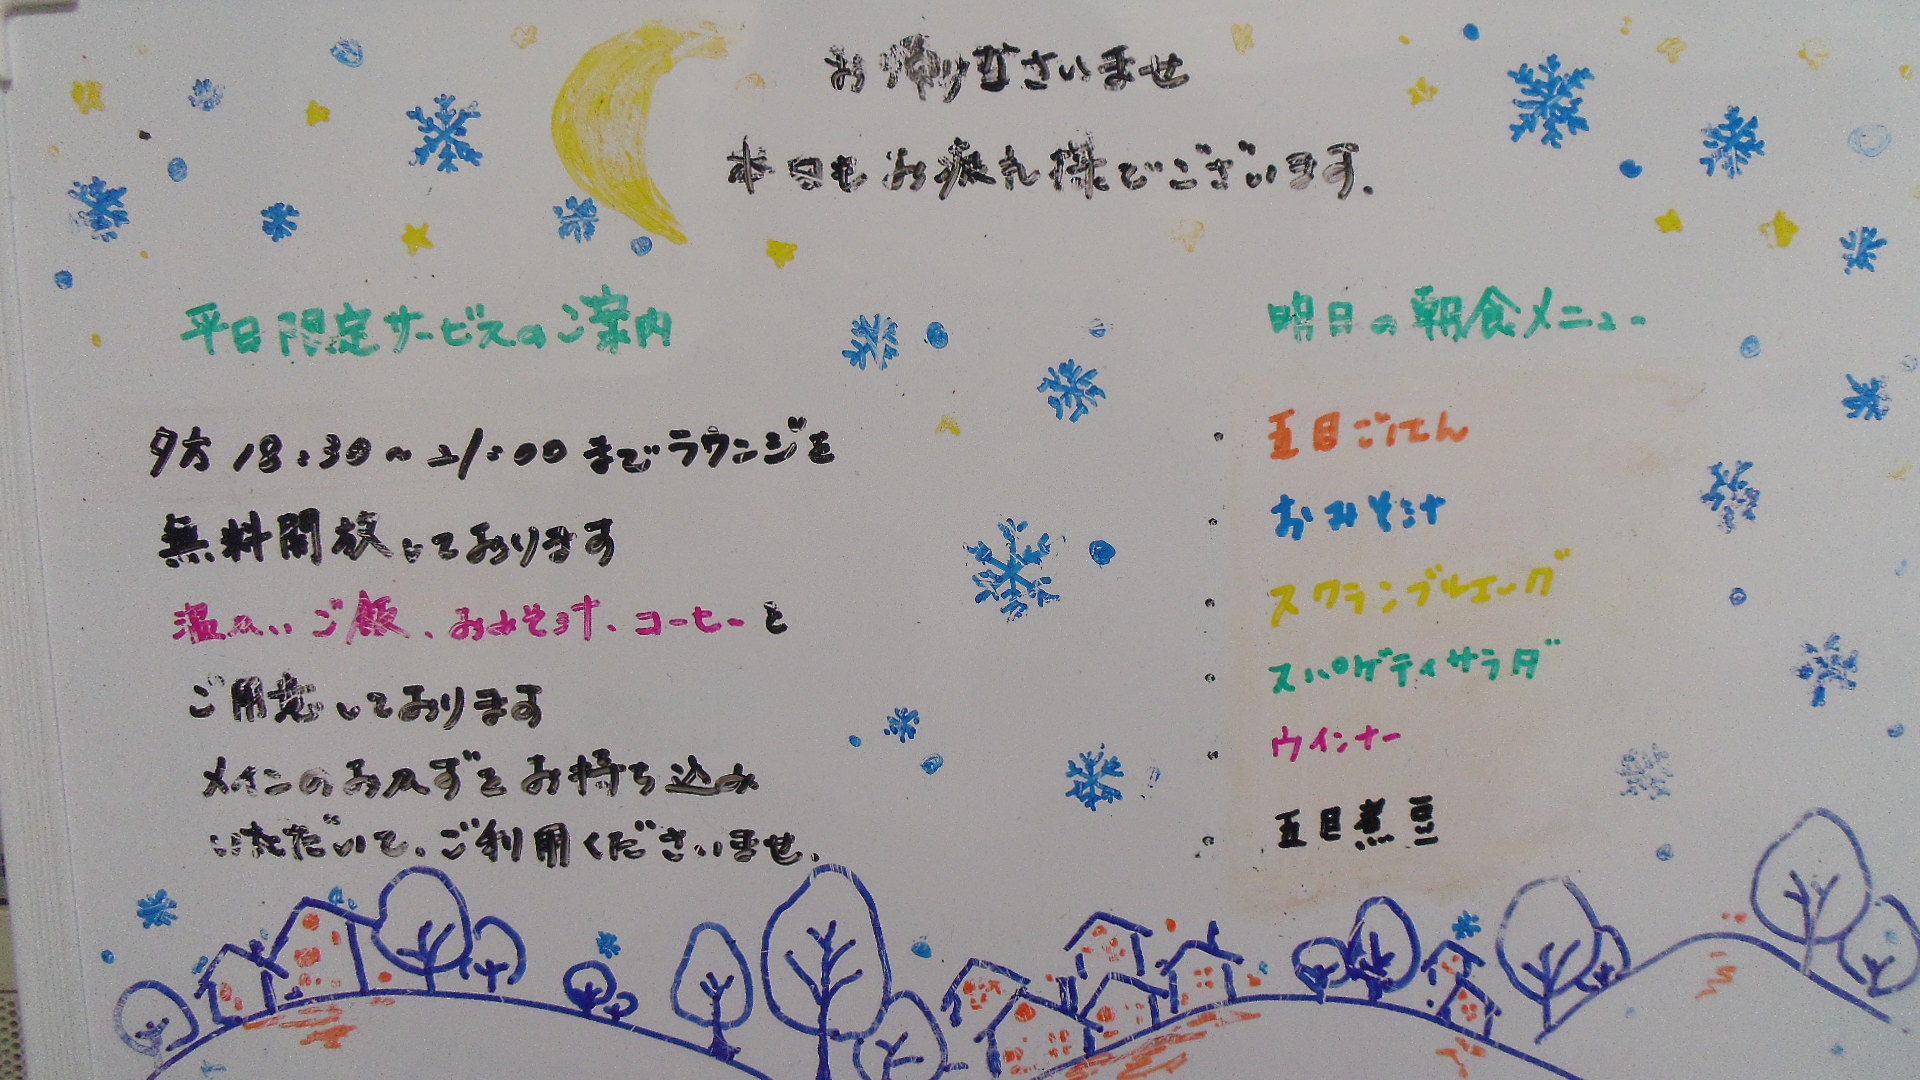 お帰りなさいませ
本日もお疲れ様でございます.
平日限定サービスのご案内
夕方 18:30～21:00 までラウンジを
無料開放しております
温かいご飯、おみそ汁、コーヒーと
ご用意しております
メインのおかずをお持ち込み
いただいて、ご利用くださいませ.
明日の朝食メニュー
・ 五目ごはん
・ おみそ汁
・ スクランブルエッグ
・ スパゲティサラダ
・ ウインナー
・ 五目煮豆